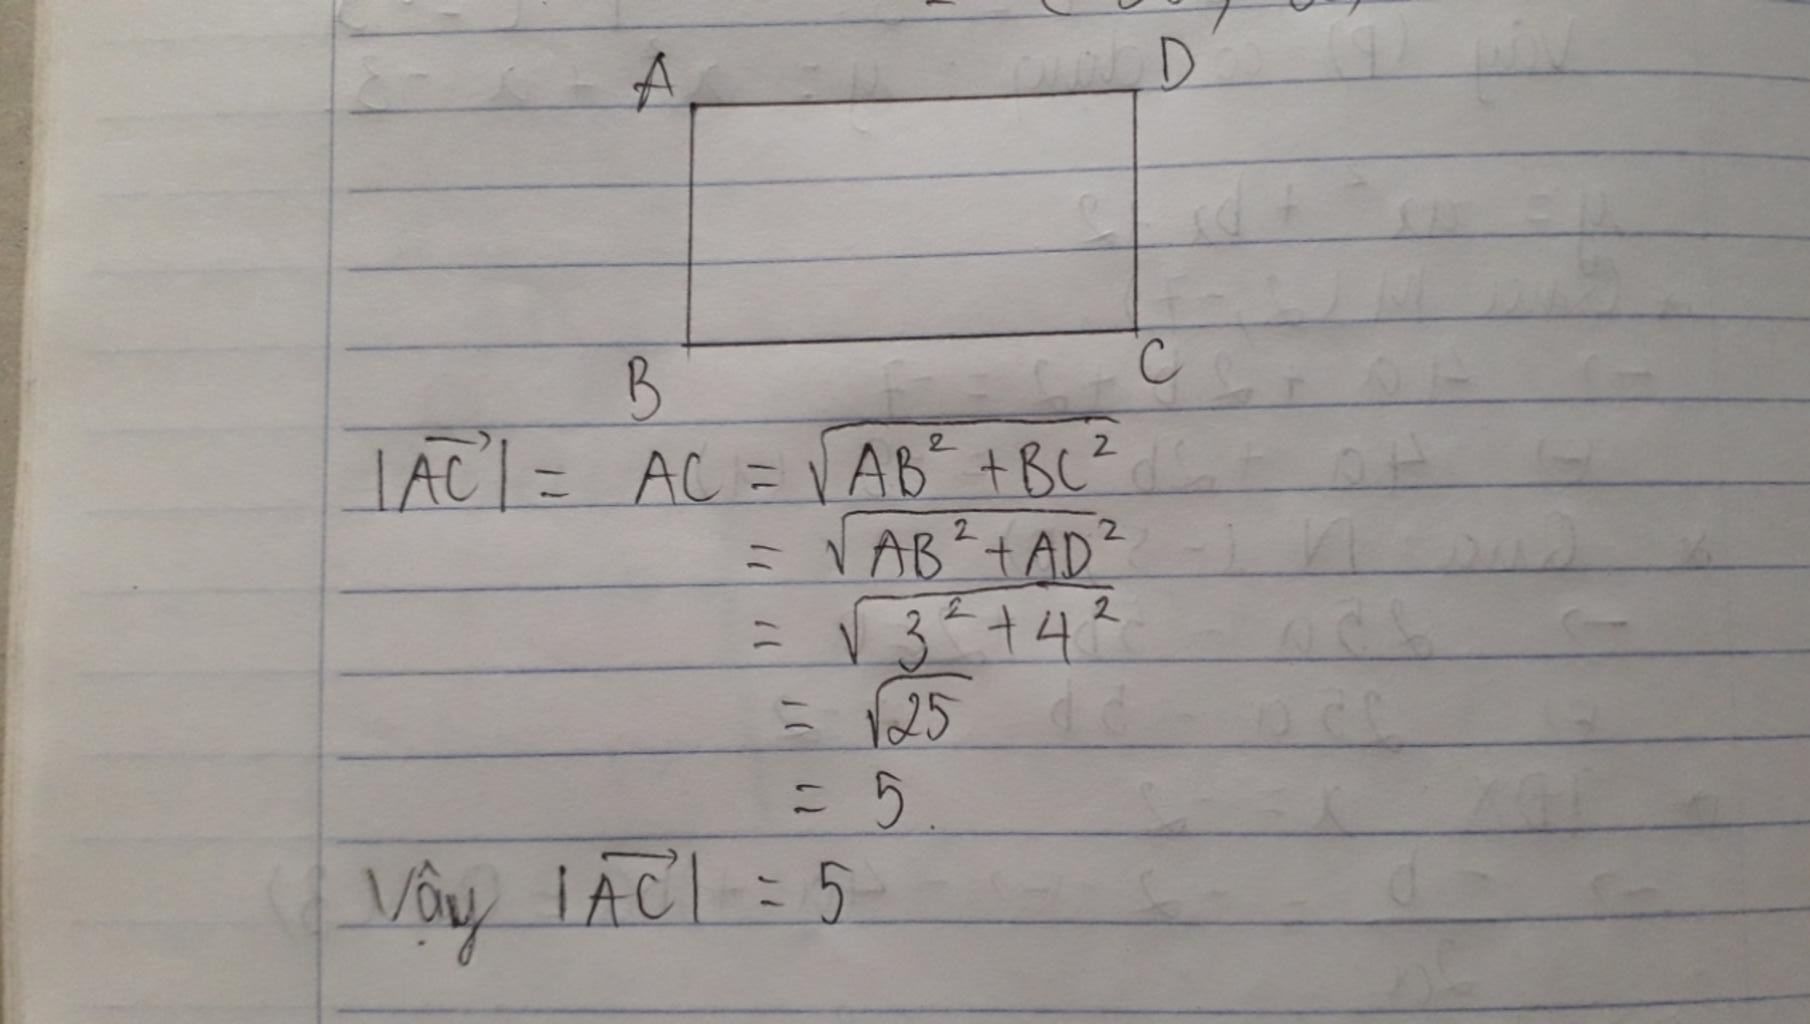 A D
B C
|\overrightarrow{AC}| = AC = √(AB² + BC²)
= √(AB² + AD²)
= √(3² + 4²)
= √25
= 5.
Vậy |\overrightarrow{AC}| = 5